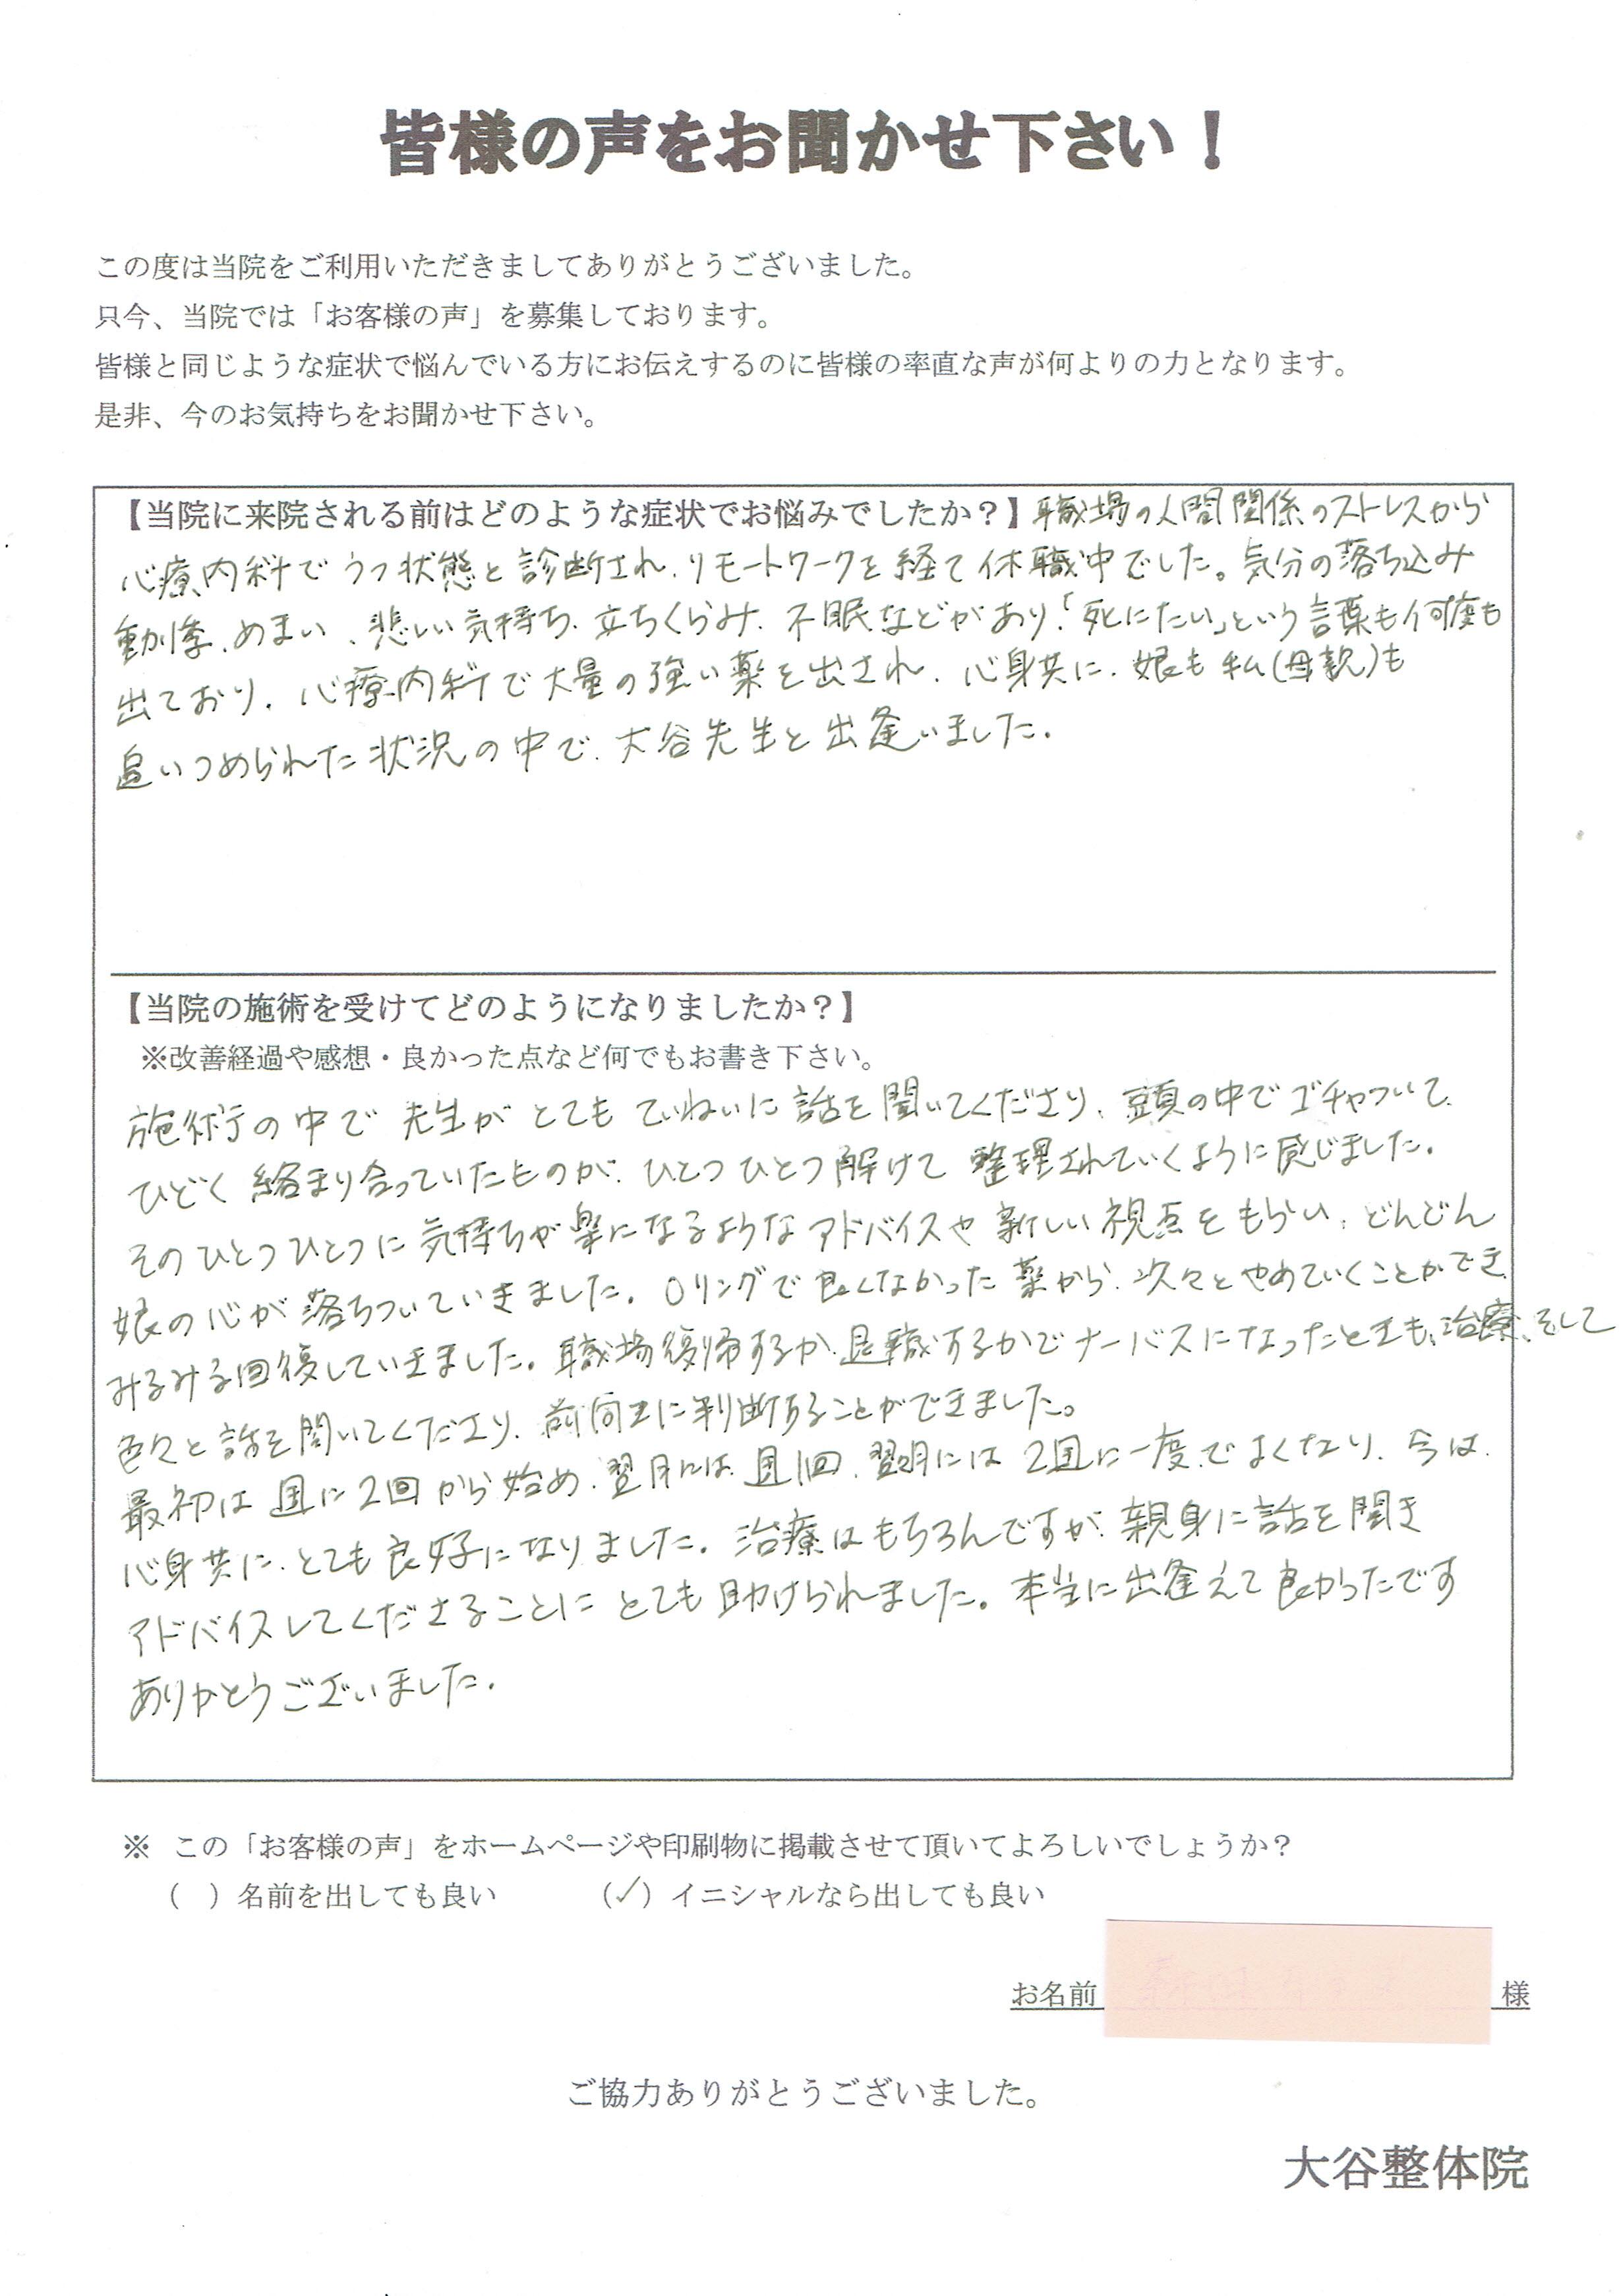 皆様の声をお聞かせ下さい！
この度は当院をご利用いただきましてありがとうございました。
只今、当院では「お客様の声」を募集しております。
皆様と同じような症状で悩んでいる方にお伝えするのに皆様の率直な声が何よりの力となります。
是非、今のお気持ちをお聞かせ下さい。
【当院に来院される前はどのような症状でお悩みでしたか？】職場の人間関係のストレスから
心療内科でうつ状態と診断され、リモートワークを経て休職中でした。気分の落ち込み
動悸、めまい、悲しい気持ち、立ちくらみ、不眠などがあり、「死にたい」という言葉も何度も
出ており、心療内科で大量の強い薬を出され、心身共に、娘も私(母親)も
追いつめられた状況の中で、大谷先生と出逢いました。
【当院の施術を受けてどのようになりましたか？】
※改善経過や感想・良かった点など何でもお書き下さい。
施術の中で先生がとてもていねいに話を聞いてくださり、頭の中でゴチャついて、
ひどく絡まり合っていたものが、ひとつひとつ解けて整理されていくように感じました。
そのひとつひとつに気持ちが楽になるようなアドバイスや新しい視点をもらい、どんどん
娘の心が落ちついていきました。Oリングで良くなかった薬から、次々とやめていくことができ、
みるみる回復していきました。職場復帰するか、退職するかでナーバスになったときも、治療、そして
色々と話を聞いてくださり、前向きに判断することができました。
最初は週に2回から始め、翌月には、週1回、翌翌月には2週に一度でよくなり、今は、
心身共に、とても良好になりました。治療はもちろんですが、親身に話を聞き
アドバイスしてくださることにとても助けられました。本当に出逢えて良かったです
ありがとうございました。
※ この「お客様の声」をホームページや印刷物に掲載させて頂いてよろしいでしょうか？
（ ）名前を出しても良い （✓）イニシャルなら出しても良い
お名前 様
ご協力ありがとうございました。
大谷整体院